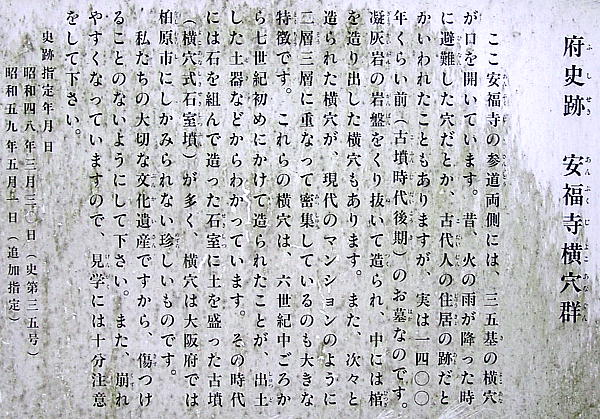 府史跡　安福寺横穴群
ここ安福寺の参道両側には、三五基の横穴
が口を開いています。昔、火の雨が降った時
に避難した穴だとか、古代人の住居の跡だと
かいわれたこともありますが、実は一四〇〇
年くらい前（古墳時代後期）のお墓なのです。
凝灰岩の岩盤をくり抜いて造られ、中には棺
を造り出した横穴もあります。また、次々と
造られた横穴が、現代のマンションのように
二層三層に重なって密集しているのも大きな
特徴です。これらの横穴は、六世紀中ごろか
ら七世紀初めにかけて造られたことが、出土
した土器などからわかっています。その時代
には石を組んで造った石室に土を盛った古墳
（横穴式石室墳）が多く、横穴は大阪府では
柏原市にしかみられない珍しいものです。
私たちの大切な文化遺産ですから、傷つけ
ることのないようにして下さい。また、崩れ
やすくなっていますので、見学には十分注意
をして下さい。
史跡指定年月日
昭和四八年三月三〇日（史第三五号）
昭和五九年五月一日（追加指定）